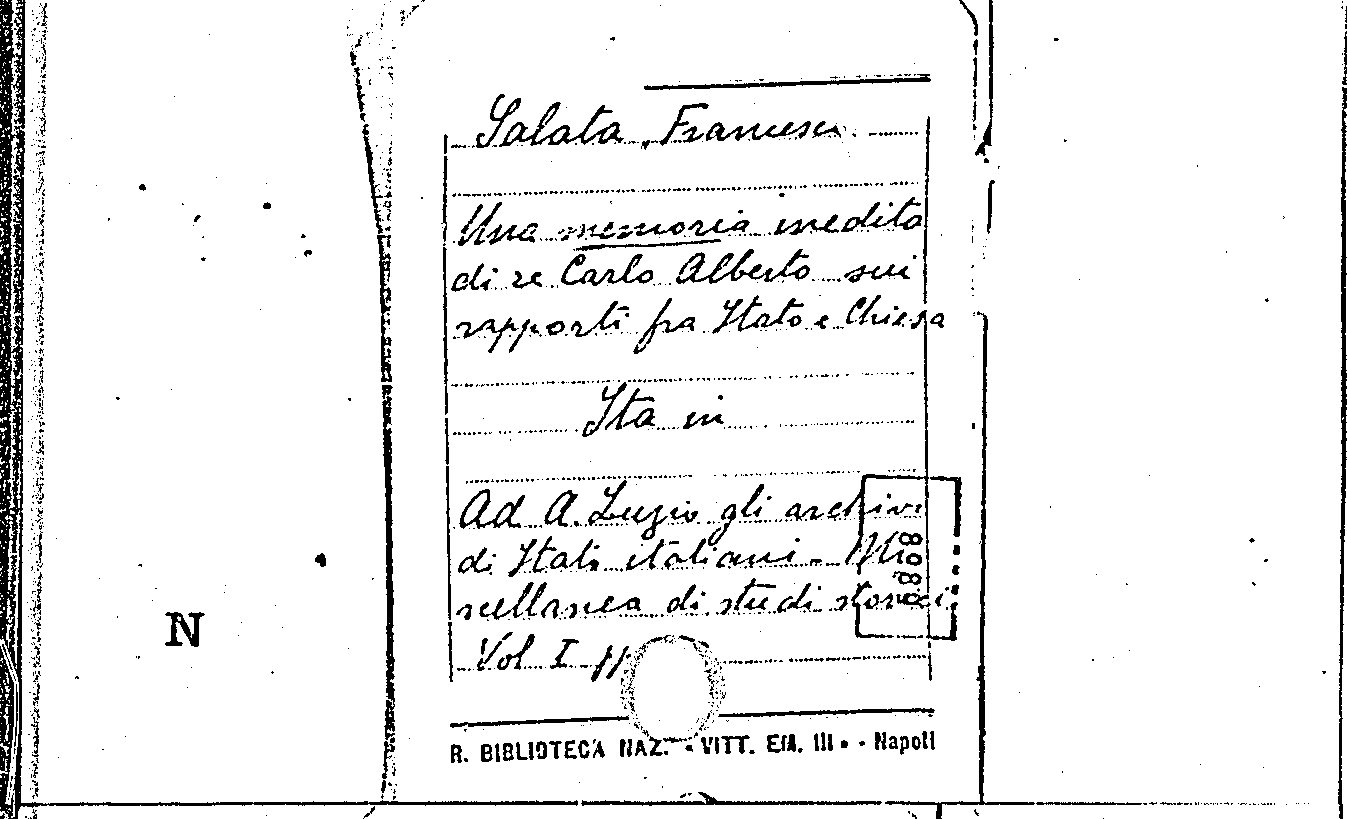 Salata, Francesco
Una memoria inedita
di re Carlo Alberto sui
rapporti fra Stato e Chiesa
Sta in
Ad A. Luzio gli archivi
di Stato italiani. Mi
scellanea di studi storici.
Vol I pp
N
R. BIBLIOTECA NAZ. - VITT. EM. III - Napoli